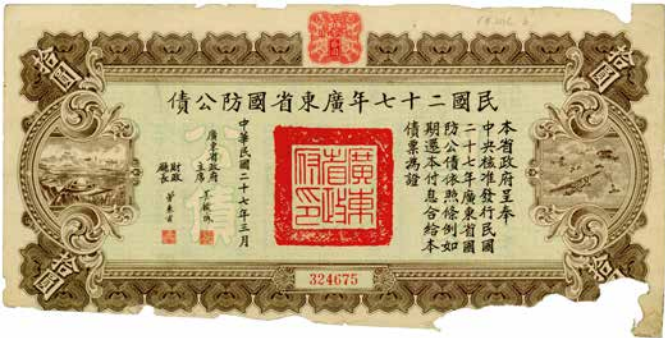 拾圓
拾圓
民國二十七年廣東省國防公債
本省政府呈奉
中央核准發行民國
二十七年廣東省國
防公債依照條例如
期還本付息合給本
債票爲證
廣東省政府印
中華民國二十七年三月
廣東省政府
主席
財政
廳長
公債
324675
拾圓
拾圓